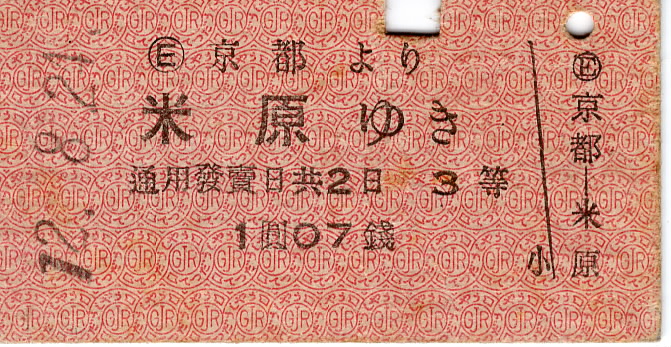 Ⓔ 京都より
米原ゆき
通用發賣日共2日 3等
1圓07錢
12. 8. 21.
Ⓔ京都—米原
小